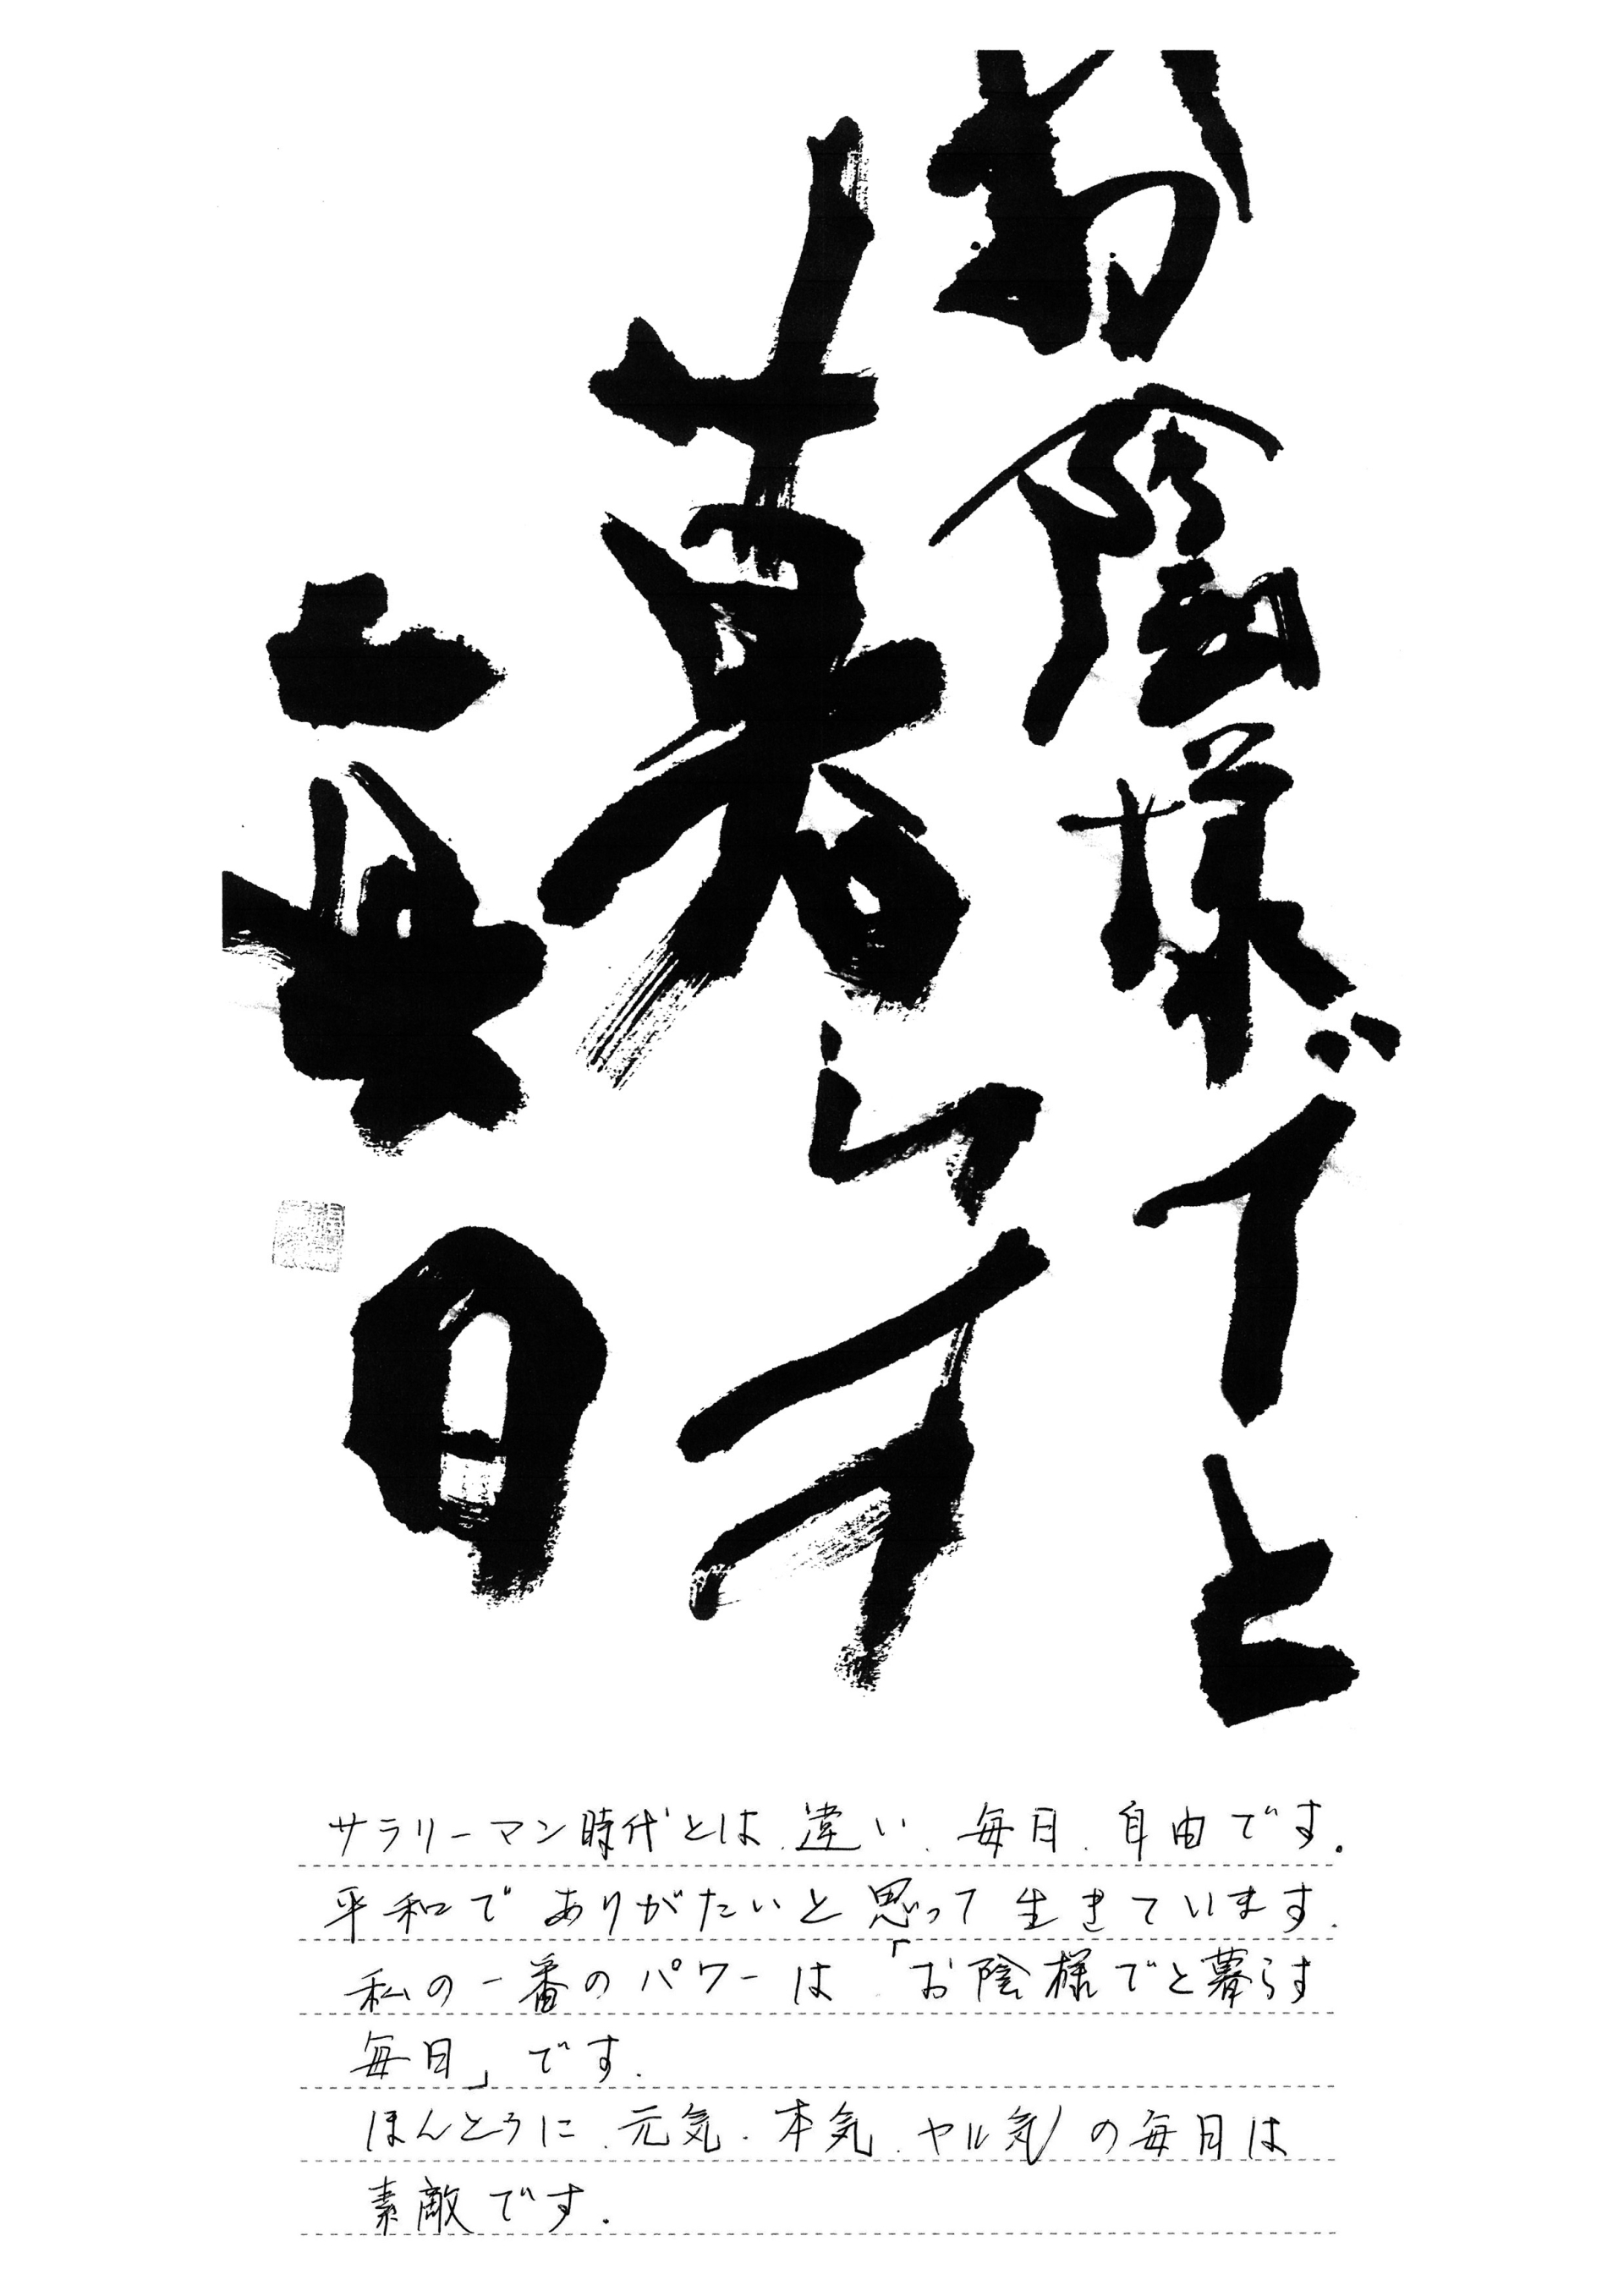 お陰様でと
暮らす
毎日
サラリーマン時代とは、違い、毎日、自由です。
平和でありがたいと思って生きています。
私の一番のパワーは「お陰様でと暮らす
毎日」です。
ほんとうに、元気、本気、ヤル気の毎日は
素敵です。